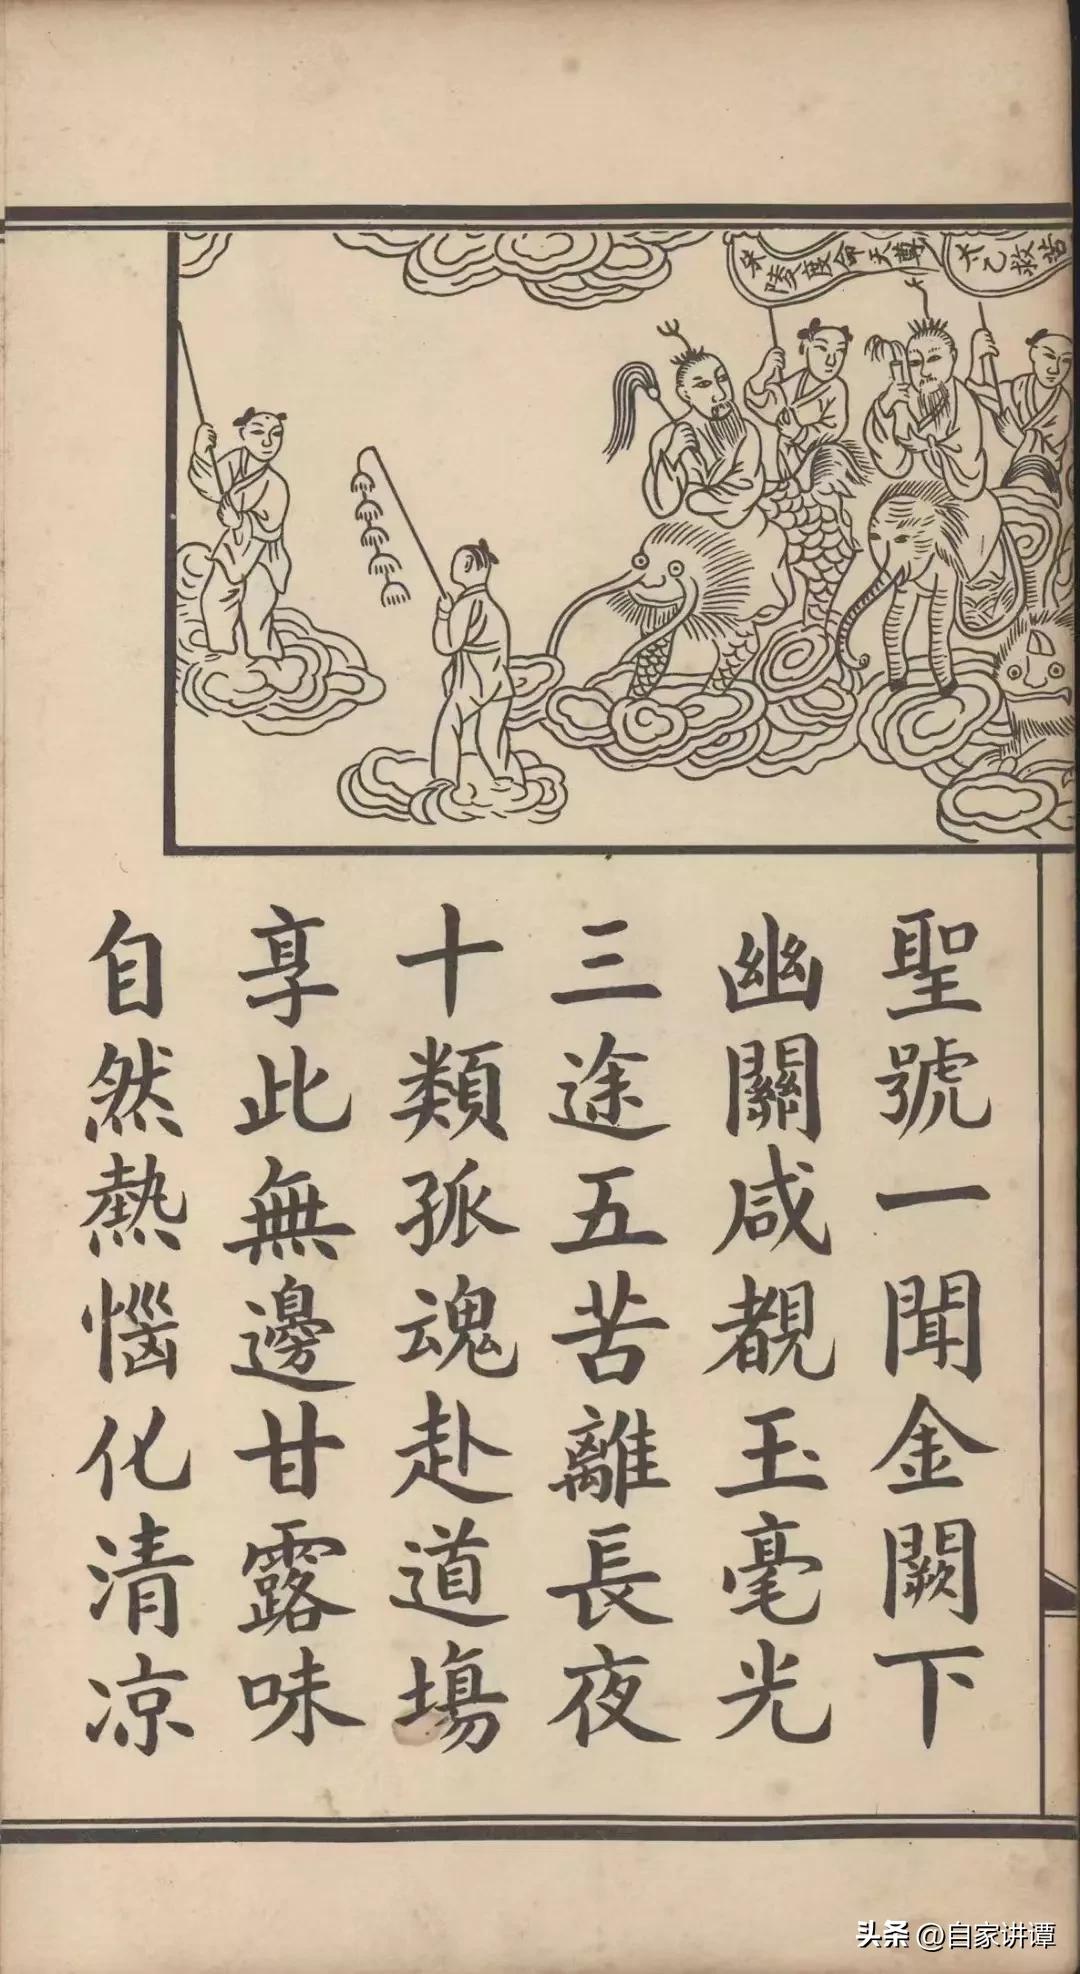 朱陵度命天尊
太乙救苦
聖號一聞金闕下
幽關咸覩玉毫光
三途五苦離長夜
十類孤魂赴道塲
享此無邊甘露味
自然熱惱化清凉
头条 @自家讲谭